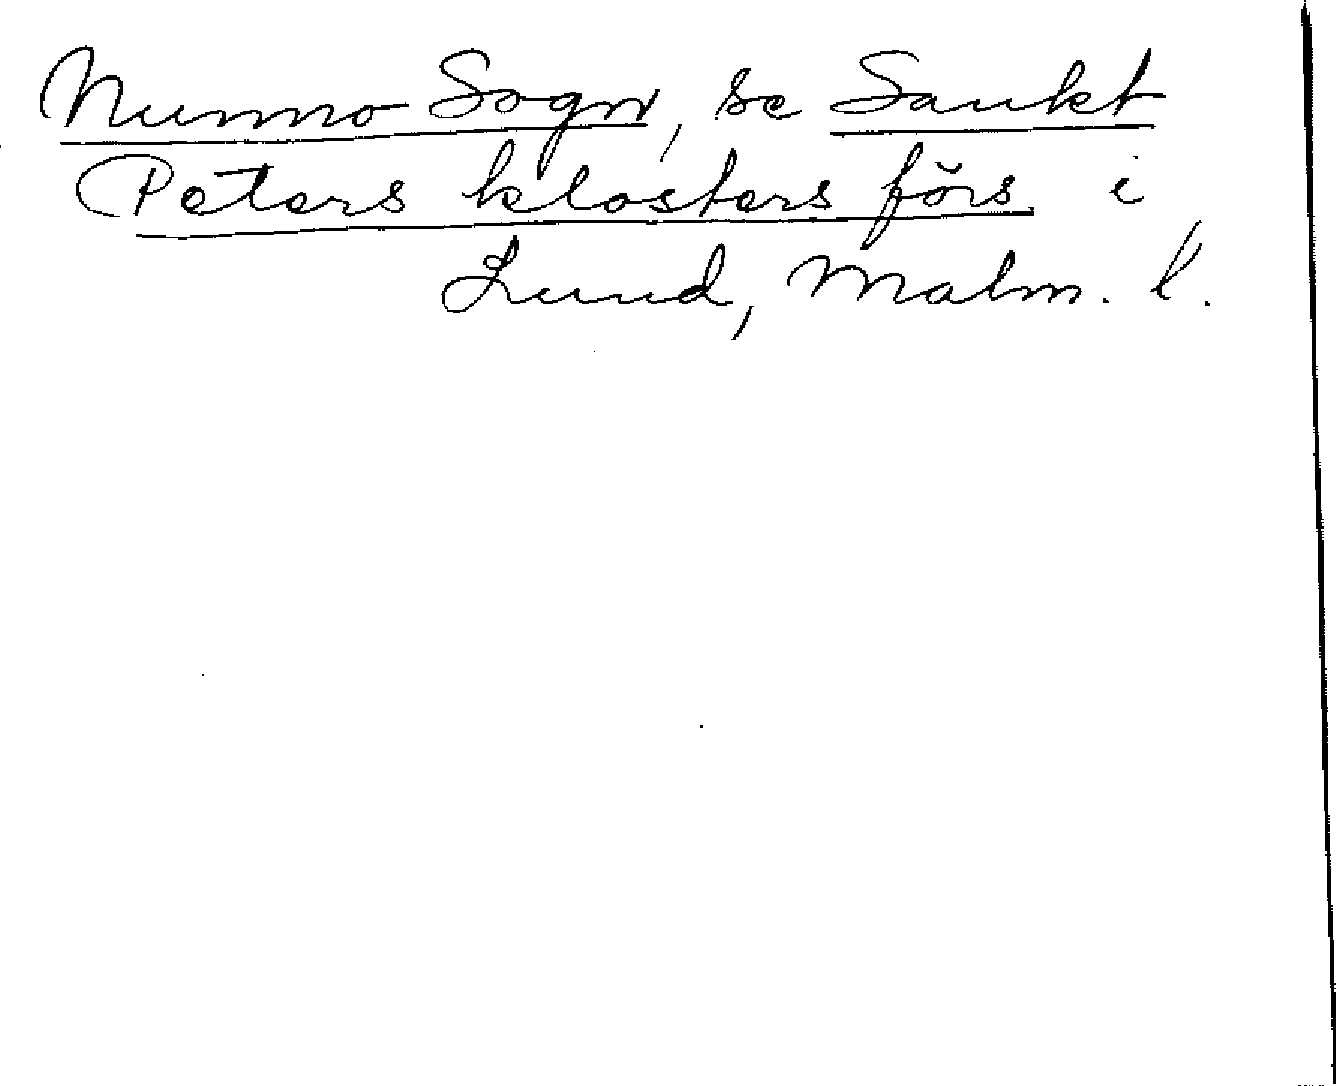 Nunno Sogn, se Sankt
Peters klosters förs. i
Lund, Malm. l.